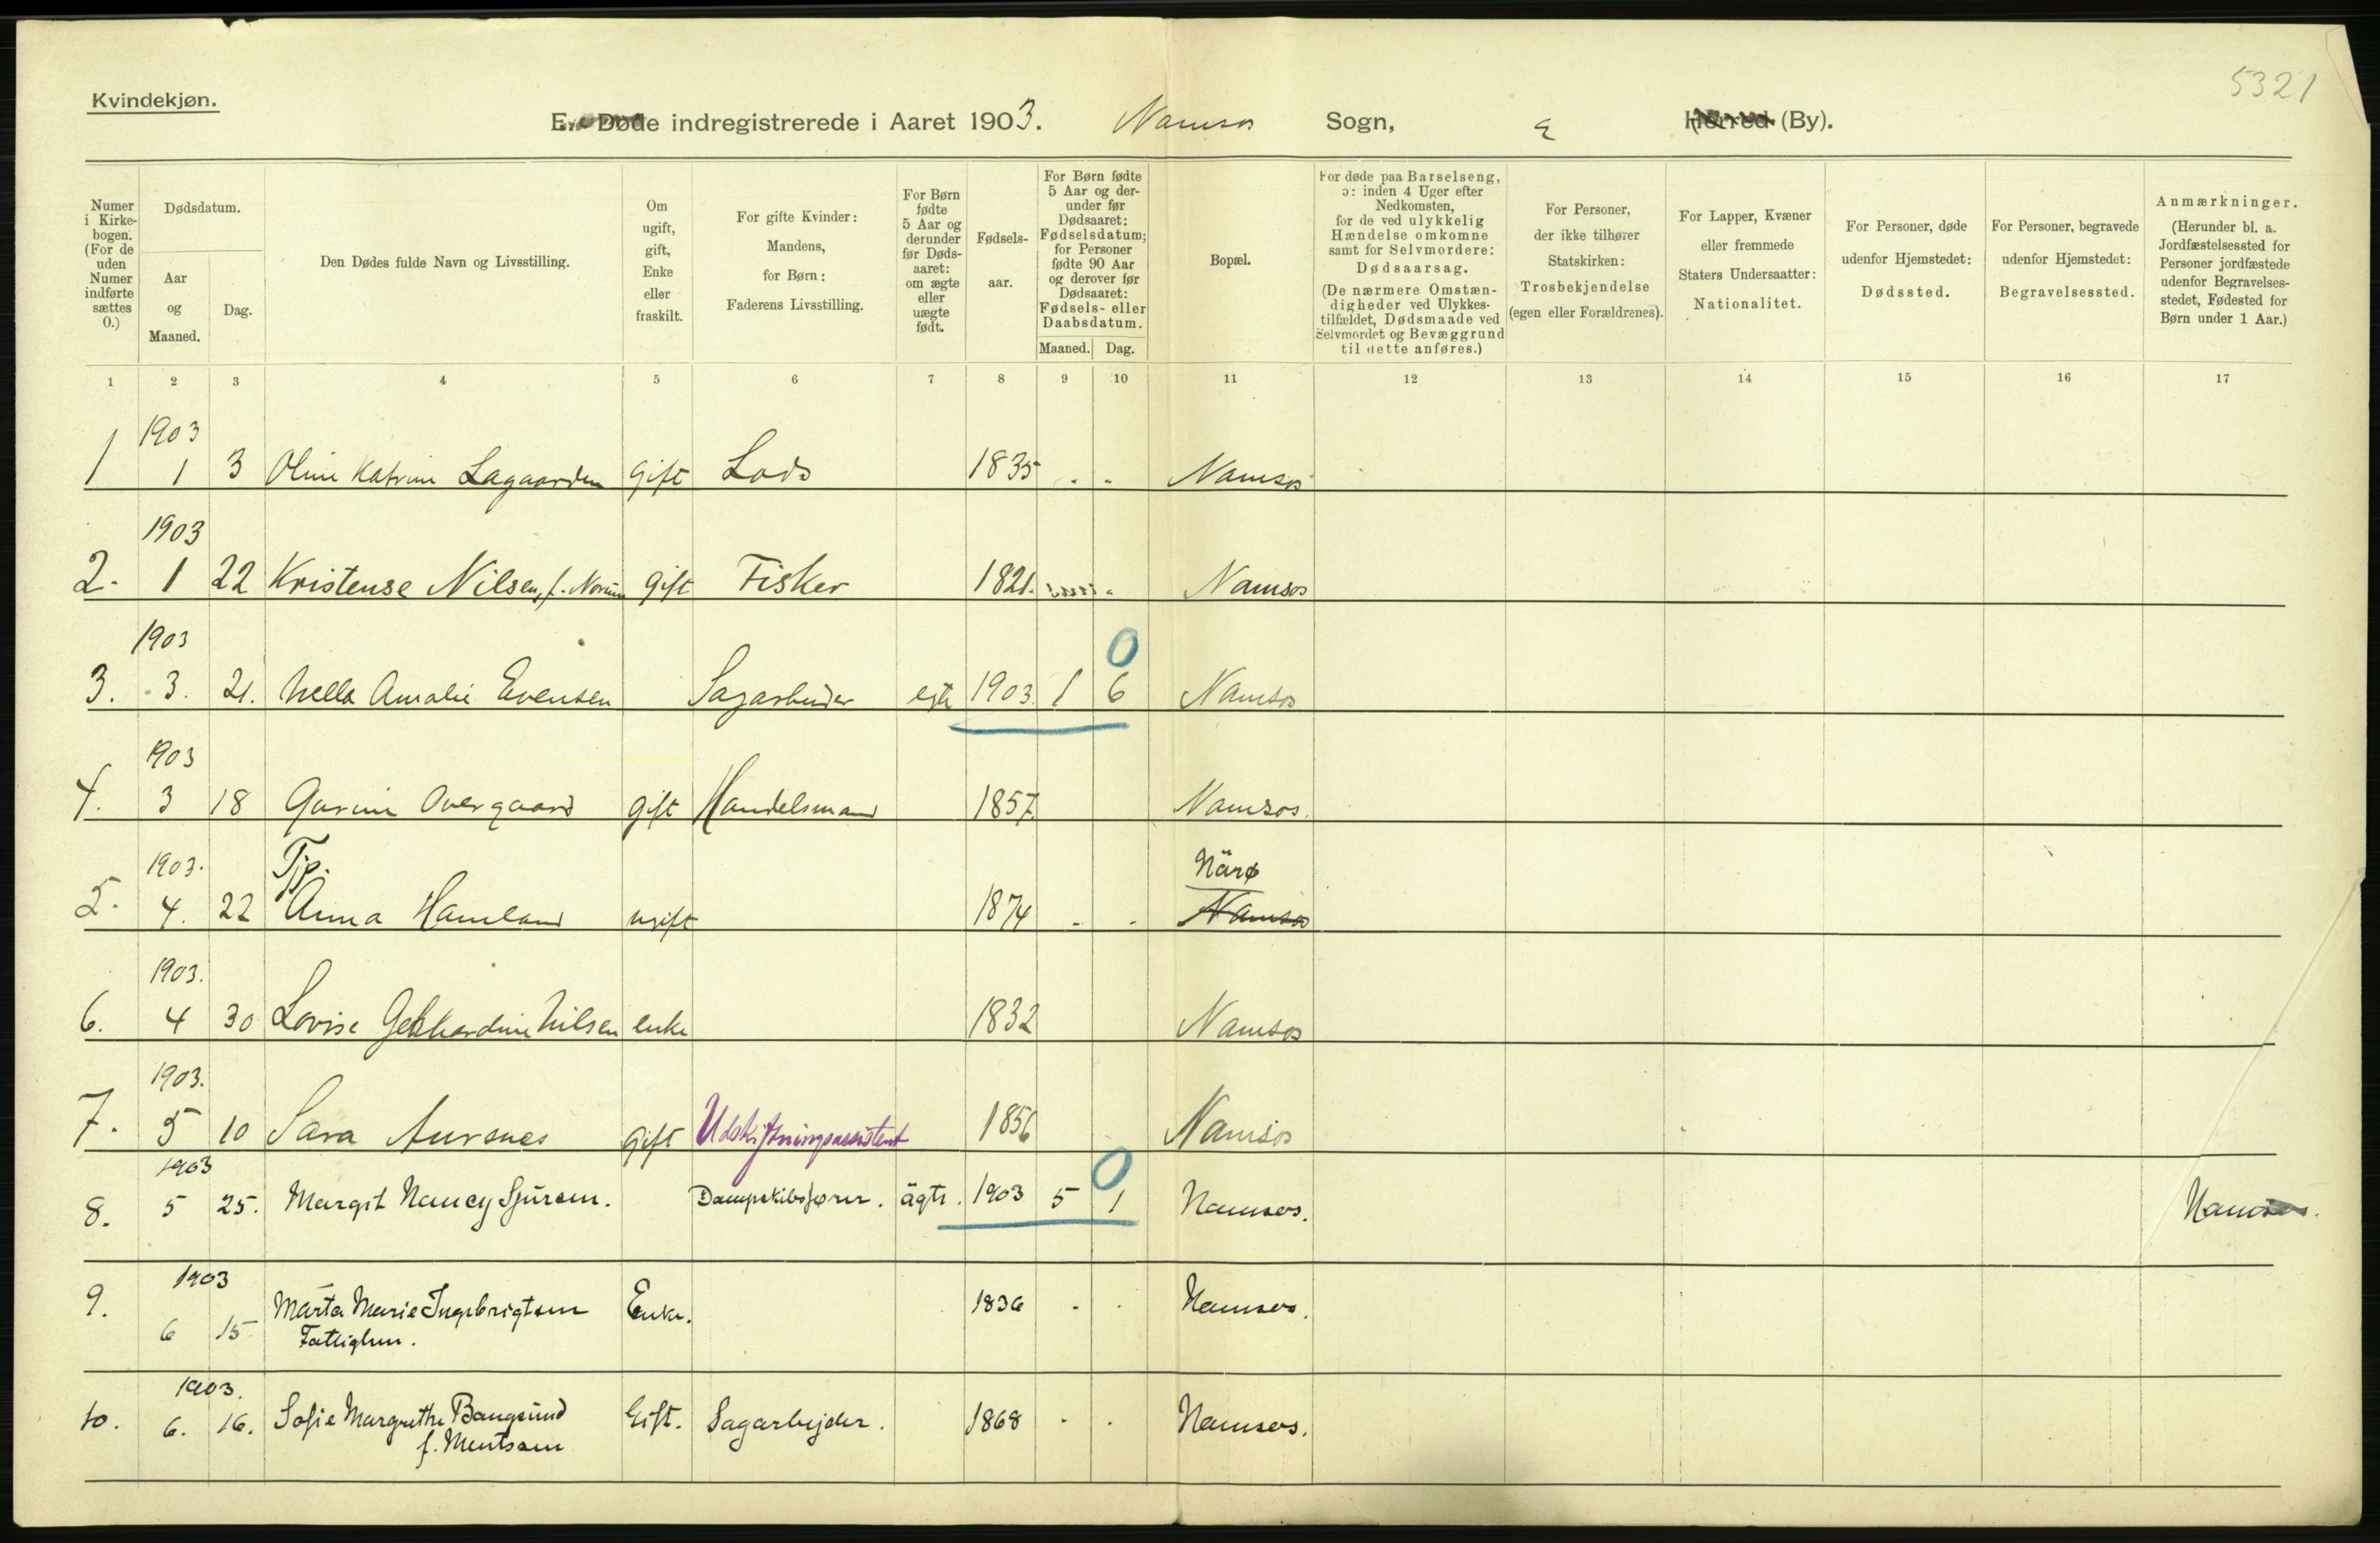 5321
Kvindekjøn.
E. Døde indregistrerede i Aaret 1903. Namsos Sogn, Herred (By).
Numer i Kirke-bogen. (For de uden Numer indførte sættes 0.)
Dødsdatum.
Aar og Maaned.
Dag.
Den Dødes fulde Navn og Livsstilling.
Om ugift, gift, Enke eller fraskilt.
For gifte Kvinder: Mandens, for Børn: Faderens Livsstilling.
For Børn fødte 5 Aar og derunder før Døds-aaret: om ægte eller uægte født.
Fødsels-aar.
For Børn fødte 5 Aar og der-under før Dødsaaret: Fødselsdatum; for Personer fødte 90 Aar og derover før Dødsaaret: Fødsels- eller Daabsdatum.
Maaned. Dag.
Bopæl.
For døde paa Barselseng, ɔ: inden 4 Uger efter Nedkomsten, for de ved ulykkelig Hændelse omkomne samt for Selvmordere: Dødsaarsag. (De nærmere Omstæn-digheder ved Ulykkes-tilfældet, Dødsmaade ved Selvmordet og Bevæggrund til dette anføres.)
For Personer, der ikke tilhører Statskirken: Trosbekjendelse (egen eller Forældrenes).
For Lapper, Kvæner eller fremmede Staters Undersaatter: Nationalitet.
For Personer, døde udenfor Hjemstedet: Dødssted.
For Personer, begravede udenfor Hjemstedet: Begravelsessted.
Anmærkninger. (Herunder bl. a. Jordfæstelsessted for Personer jordfæstede udenfor Begravelses-stedet, Fødested for Børn under 1 Aar.)
1 2 3 4 5 6 7 8 9 10 11 12 13 14 15 16 17
1903
1 1 3 Oline Katrine Lagaarden gift Lods 1835 Namsos
1903
2. 1 22 Kristense Nilsen, f. Norum gift Fisker 1821. Namsos
1903
0
3. 3. 21. Nella Amalie Evensen Sagarbeider egte 1903. 1 6 Namsos
1903
4. 3 18 Gurine Overgaard gift Handelsmand 1857. Namsos.
1903. Tjp. Närø
5. 4. 22 Anna Hamland ugift 1874 Namsos
1903.
6. 4 30 Lovise Gebhardine Nilsen enke 1832 Namsos
1903.
7. 5 10 Sara Aursnes gift Udskiftningsassistent 1856 Namsos
1903
0
8. 5 25. Margit Nancy Sjursen. Dampskibsfører. ägte. 1903 5 1 Namsos. Namsos.
1903
9. 6 15 Märta Marie Ingebrigtsen Enke. 1836 Namsos.
Fattiglem.
1903.
10. 6. 16. Sofie Margrethe Bangsund Gift. Sagarbejder. 1868 Namsos.
f. Mentsen